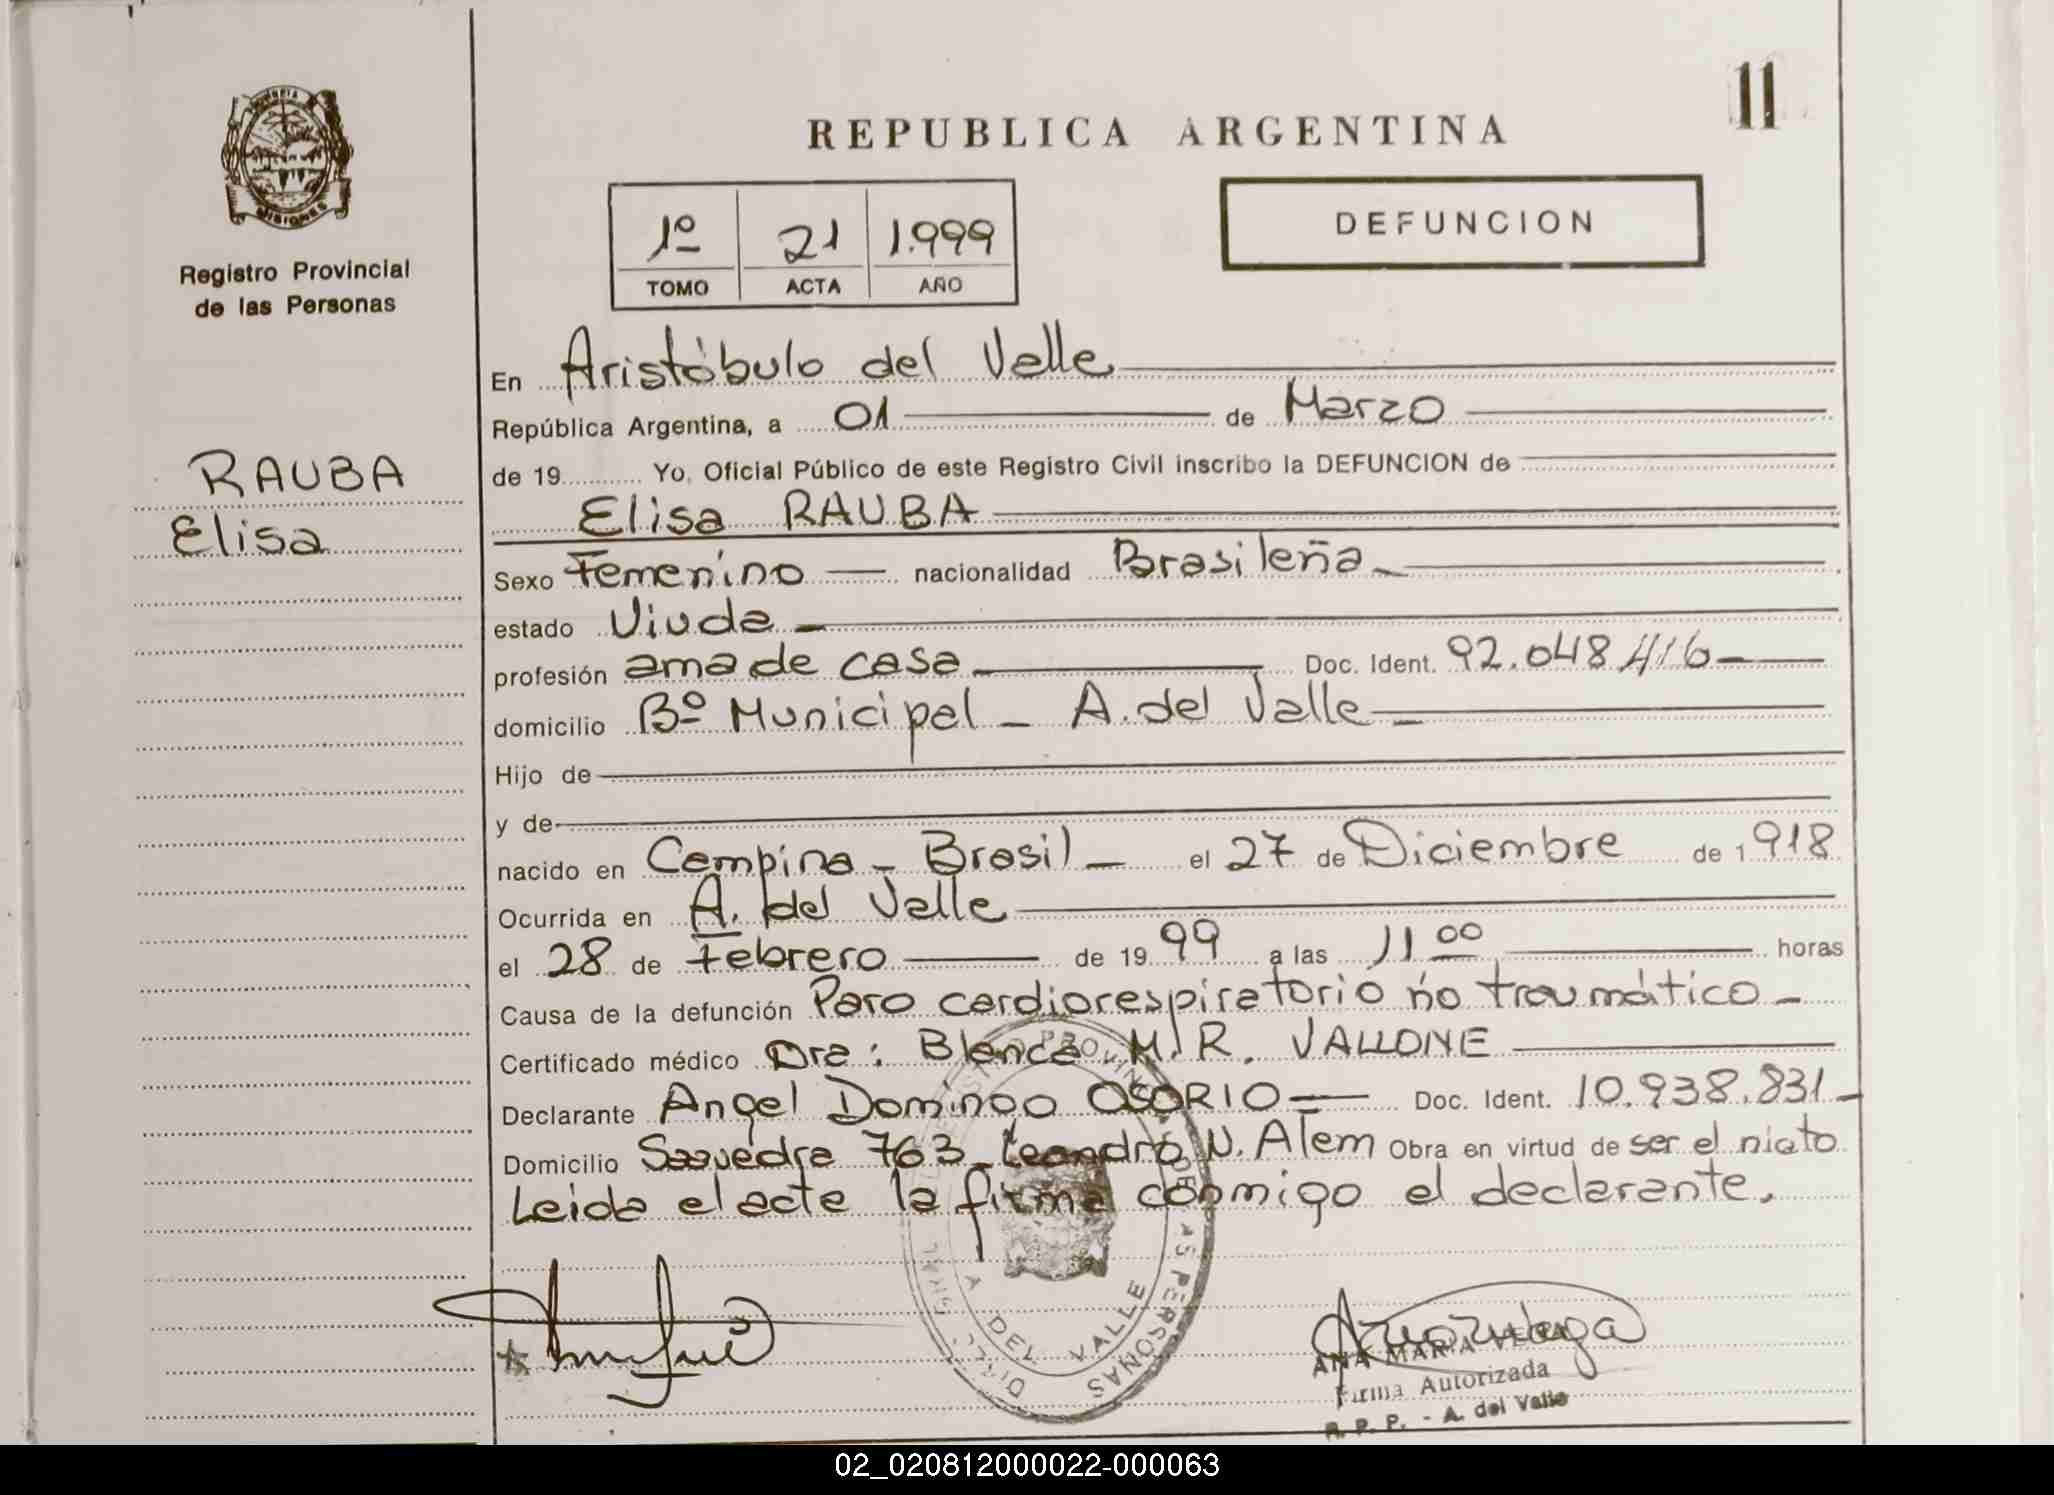 11
REPUBLICA ARGENTINA
DEFUNCION
1º 21 1.999
TOMO ACTA AÑO
MISIONES
Registro Provincial
de las Personas
RAUBA
Elisa
En Aristóbulo del Valle
República Argentina, a 01 de Marzo
de 19 Yo, Oficial Público de este Registro Civil inscribo la DEFUNCION de
Elisa RAUBA
Sexo Femenino nacionalidad Brasileña
estado Viuda
profesión ama de casa Doc. Ident. 92.048.416
domicilio Bº Municipal - A. del Valle
Hijo de
y de
nacido en Campina - Brasil el 27 de Diciembre de 1918
Ocurrida en A. del Valle
el 28 de Febrero de 1999 a las 11 00 horas
Causa de la defunción Paro cardiorespiratorio no traumático
Certificado médico Dra: Blanca M. R. VALLONE
Declarante Angel Domingo OSORIO Doc. Ident. 10.938.831
Domicilio Saavedra 763 Leandro N. Alem Obra en virtud de ser el nieto
Leida el acta la firma conmigo el declarante.
DEL VALLE
ANA MARIA
Firma Autorizada
R. P. P. - A. del Valle
02_020812000022-000063